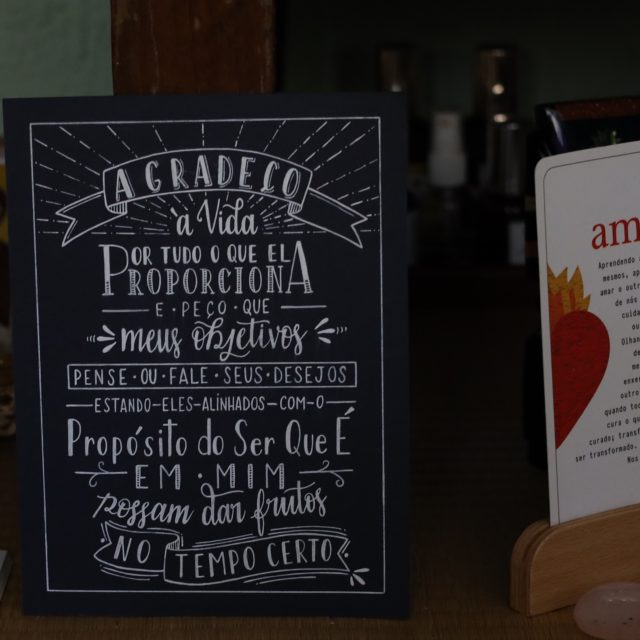 AGRADEÇO
à Vida
POR TUDO O QUE ELA
PROPORCIONA
E · PEÇO · QUE
meus objetivos
PENSE · OU · FALE · SEUS · DESEJOS
ESTANDO-ELES-ALINHADOS-COM-O
Propósito do Ser Que É
EM · MIM
possam dar frutos
NO TEMPO CERTO
am
Aprendendo
mesmos,
amar o outro
de nós
cuida
ou
Olhan
de
me
outro
quando
cura o que
curado;
ser transformado.
Nos